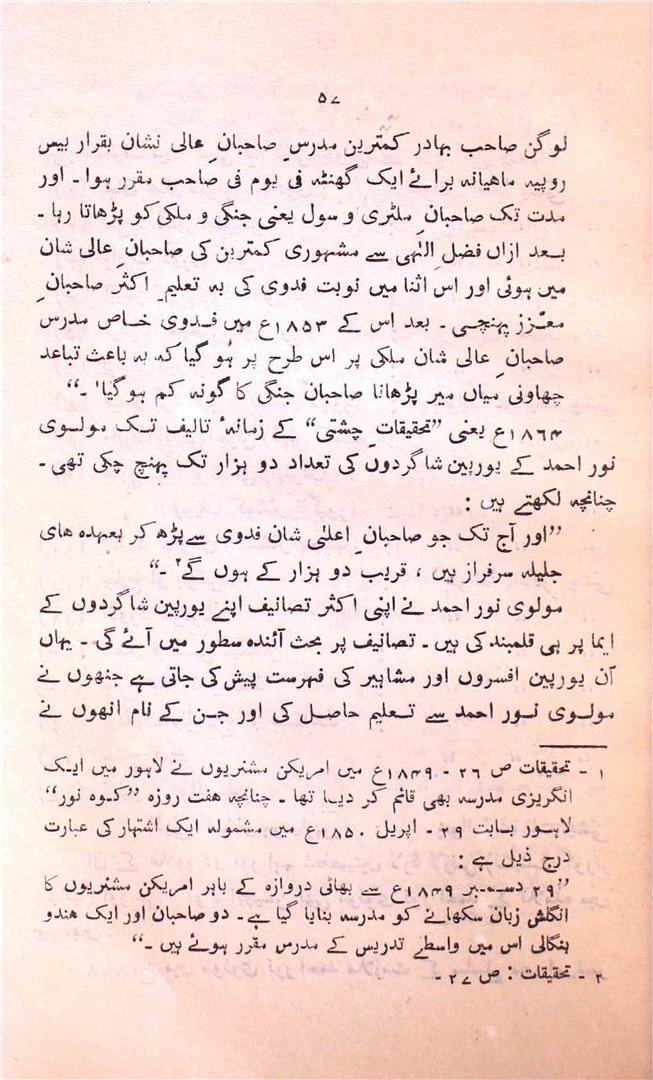 ۵۷
لوگن صاحب بہادر کمترین مدرسِ صاحبانِ عالی نشان بقرار بیس
روپیہ ماھیانہ برائے ایک گھنٹہ فی یوم فی صاحب مقرر ہوا ۔ اور
مدت تک صاحبانِ ملٹری و سول یعنی جنگی و ملکی کو پڑھاتا رہا ۔
بعد ازاں فضلِ الہٰی سے مشہوری کمترین کی صاحبانِ عالی شان
میں ہوئی اور اس اثنا میں نوبت فدوی کی بہ تعلیمِ اکثر صاحبانِ
معزز پہنچی ۔ بعد اس کے ۱۸۵۳ع میں فدوی خاص مدرس
صاحبانِ عالی شان ملکی پر اس طرح پر ہو گیا کہ بہ باعث تباعد
چھاونی میاں میر پڑھانا صاحبان جنگی کا گونہ کم ہو گیا۱ ۔“
۱۸۶۴ع یعنی ”تحقیقاتِ چشتی“ کے زمانۂ تالیف تک مولوی
نور احمد کے یورپین شاگردوں کی تعداد دو ہزار تک پہنچ چکی تھی ۔
چنانچہ لکھتے ہیں :
”اور آج تک جو صاحبانِ اعلیٰ شان فدوی سے پڑھ کر بعہدہ ھای
جلیلہ سرفراز ہیں ، قریب دو ہزار کے ہوں گے۲ ۔“
مولوی نور احمد نے اپنی اکثر تصانیف اپنے یورپین شاگردوں کے
ایما پر ہی قلمبند کی ہیں ۔ تصانیف پر بحث آئندہ سطور میں آئے گی ۔ یہاں
اُن یورپین افسروں اور مشاہیر کی فہرست پیش کی جاتی ہے جنھوں نے
مولوی نور احمد سے تعلیم حاصل کی اور جن کے نام انھوں نے
۱ ۔ تحقیقات ص ۲۶ ۔ ۱۸۴۹ع میں امریکن مشنریوں نے لاہور میں ایک
انگریزی مدرسہ بھی قائم کر دیا تھا ۔ چنانچہ ھفت روزہ ”کوہ نور“
لاہور بابت ۲۹ ۔ اپریل ۱۸۵۰ع میں مشمولہ ایک اشتہار کی عبارت
درج ذیل ہے :
”۲۹ دسمبر ۱۸۴۹ع سے بھاٹی دروازہ کے باہر امریکن مشنریوں کا
انگلش زبان سکھانے کو مدرسہ بنایا گیا ہے ۔ دو صاحبان اور ایک ھندو
بنگالی اس میں واسطے تدریس کے مدرس مقرر ہوئے ہیں ۔“
۲ ۔ تحقیقات : ص ۲۷ ۔